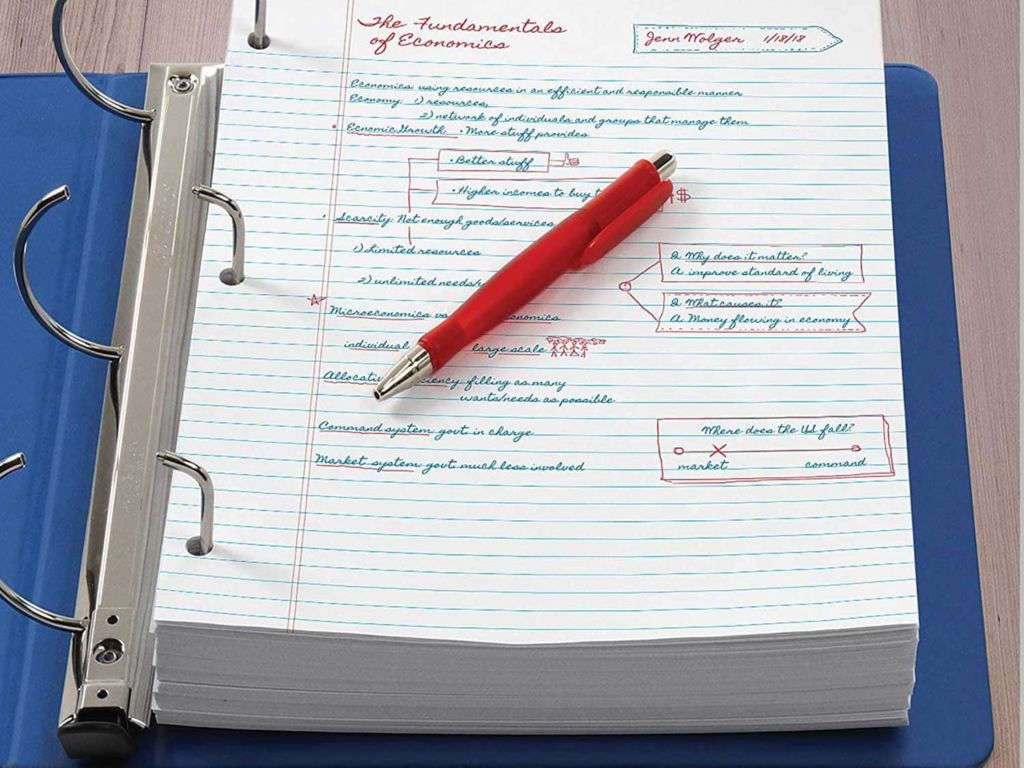 The Fundamentals
of Economics
Jenn Wolger 1/18/18
Economics: using resources in an efficient and responsible manner
Economy: 1) resources,
2) network of individuals and groups that manage them
• Ecnomic Growth • More stuff provides
• Better stuff
• Higher incomes to buy $
• Scarcity: Not enough goods/services
1) Limited resources
2) unlimited needs/
Q. Why does it matter?
A. improve standard of living
Q. What causes it?
A. Money flowing in economy
Microeconomics vs
individual large scale
filling as many
wants/needs as possible
Command system: govt. in charge
Market system: govt. much less involved
Where does the U.S. fall?
market command